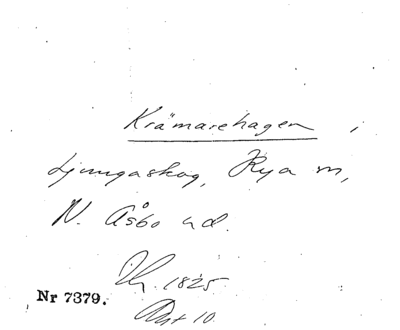 Krämarehagen i
Ljungaskog, Rya sn,
N. Åsbo hd.
1825
Nr 7379.
Akt 10.